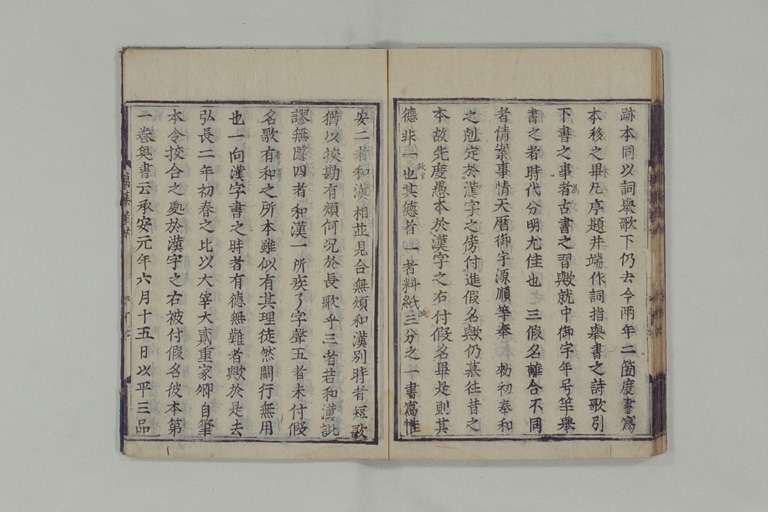 跡本同以詞擧歌下仍去今兩年二箇度書寫
本移之畢凡序題并端作詞指擧書之詩歌引
下書之事者古書之習歟就中御字年号等擧
書之者時代分明尤佳也　三假名離合不同
者倩案事情天曆御宇源順等奉　勅初奉和
之尅定於漢字之傍付進假名歟仍慕往昔之
本故先度愚本於漢字之右付假名畢是則其
德非一也其德者　一者料紙三分之一書寫惟
安二者和漢相並見合無煩和漢別時者短歌
猶以挍勘有煩何況於長歌乎三者若和漢訛
謬無隱四者和漢一所疾了字聲五者未付假
名歌有和之所本雖似有其理徒然闕行無用
也一向漢字書之時者有德無難者歟於是去
弘長二年初春之比以大宰大貳重家卿自筆
本令挍合之處於漢字之右被付假名彼本第
一卷奥書云承安元年六月十五日以平三品